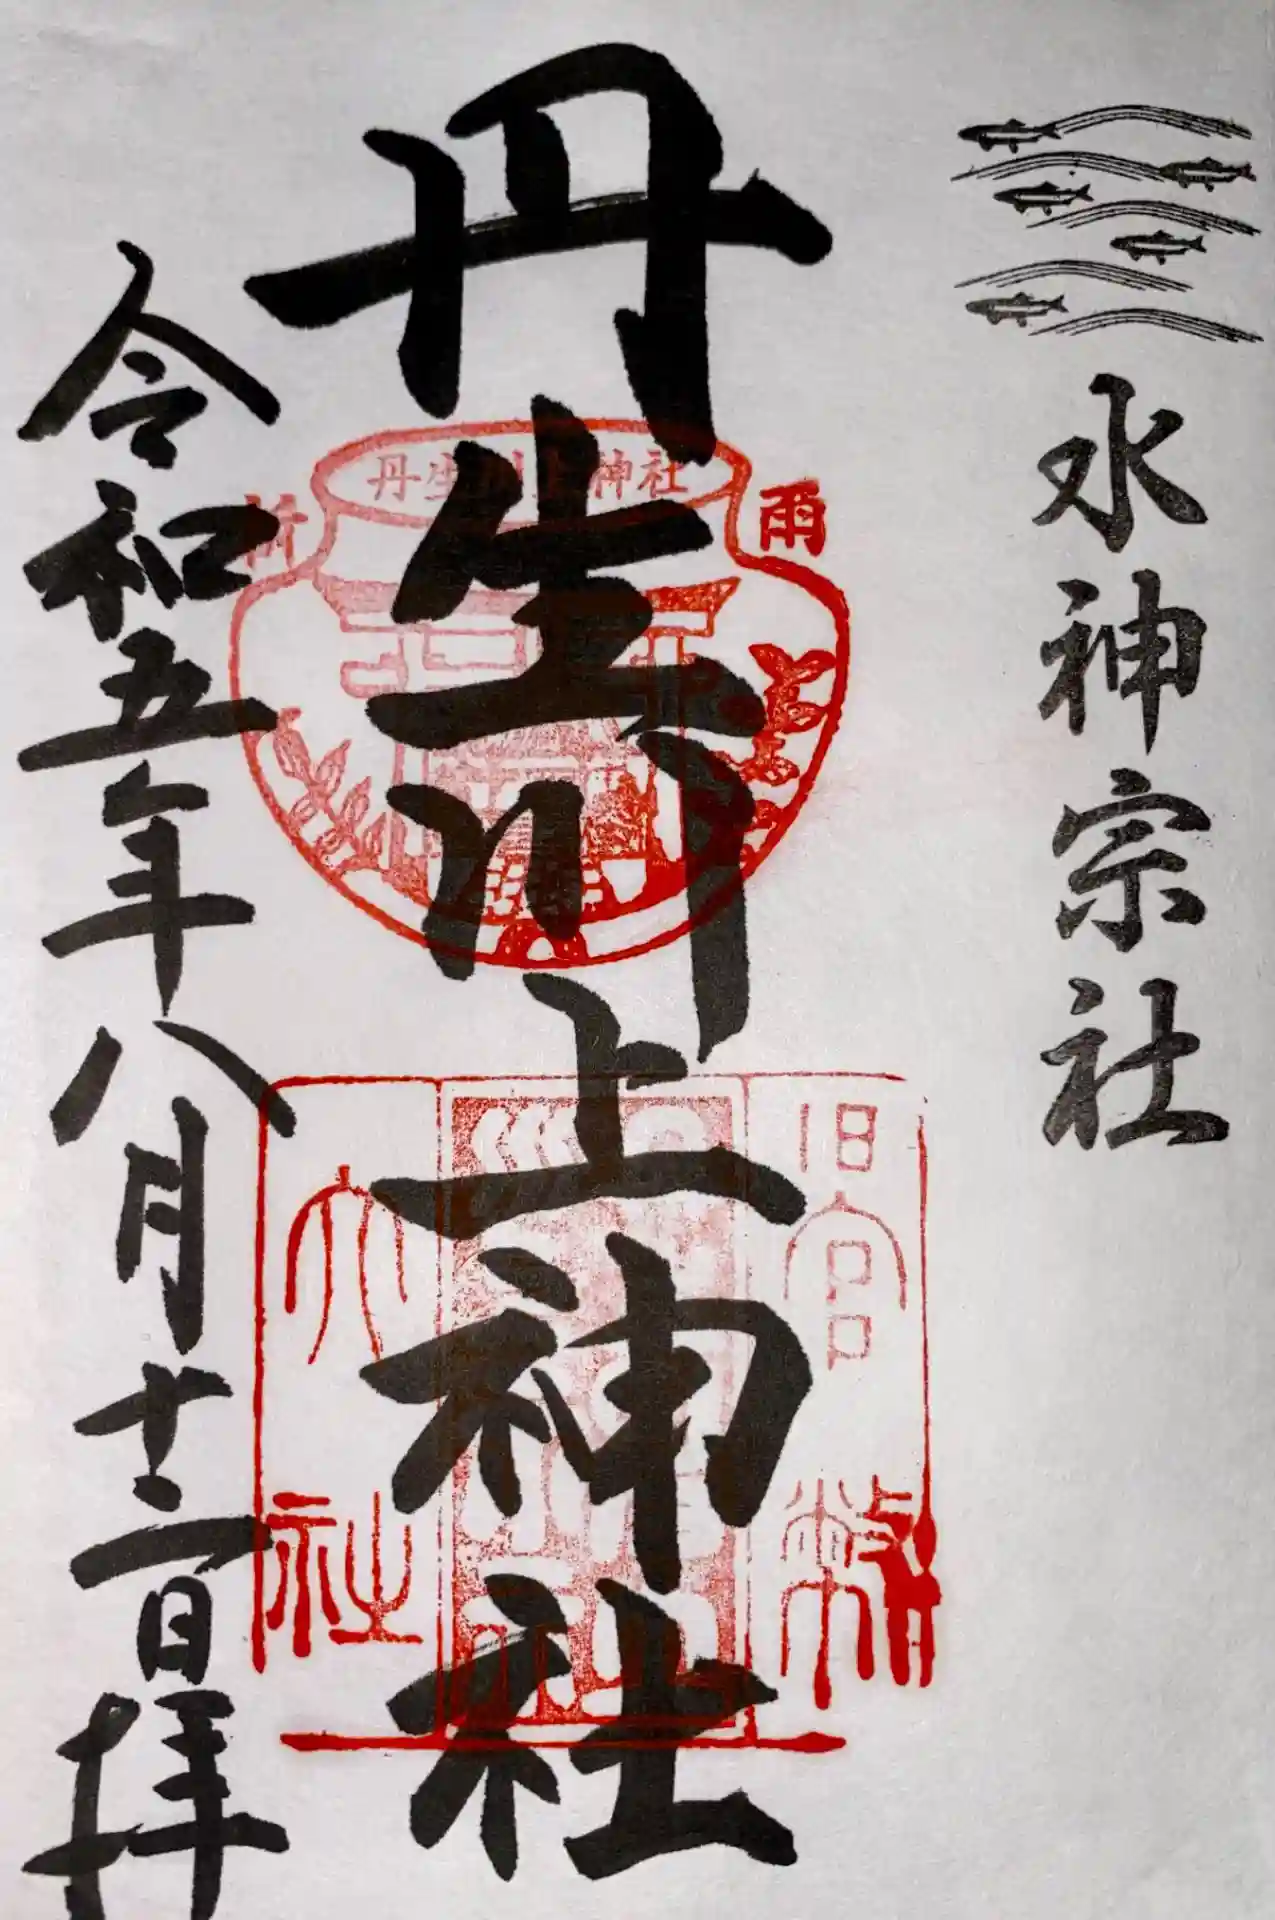 水神宗社
丹生川上神社
令和五年八月十二日拝
丹生川上神社
祈
雨
旧官幣
大社